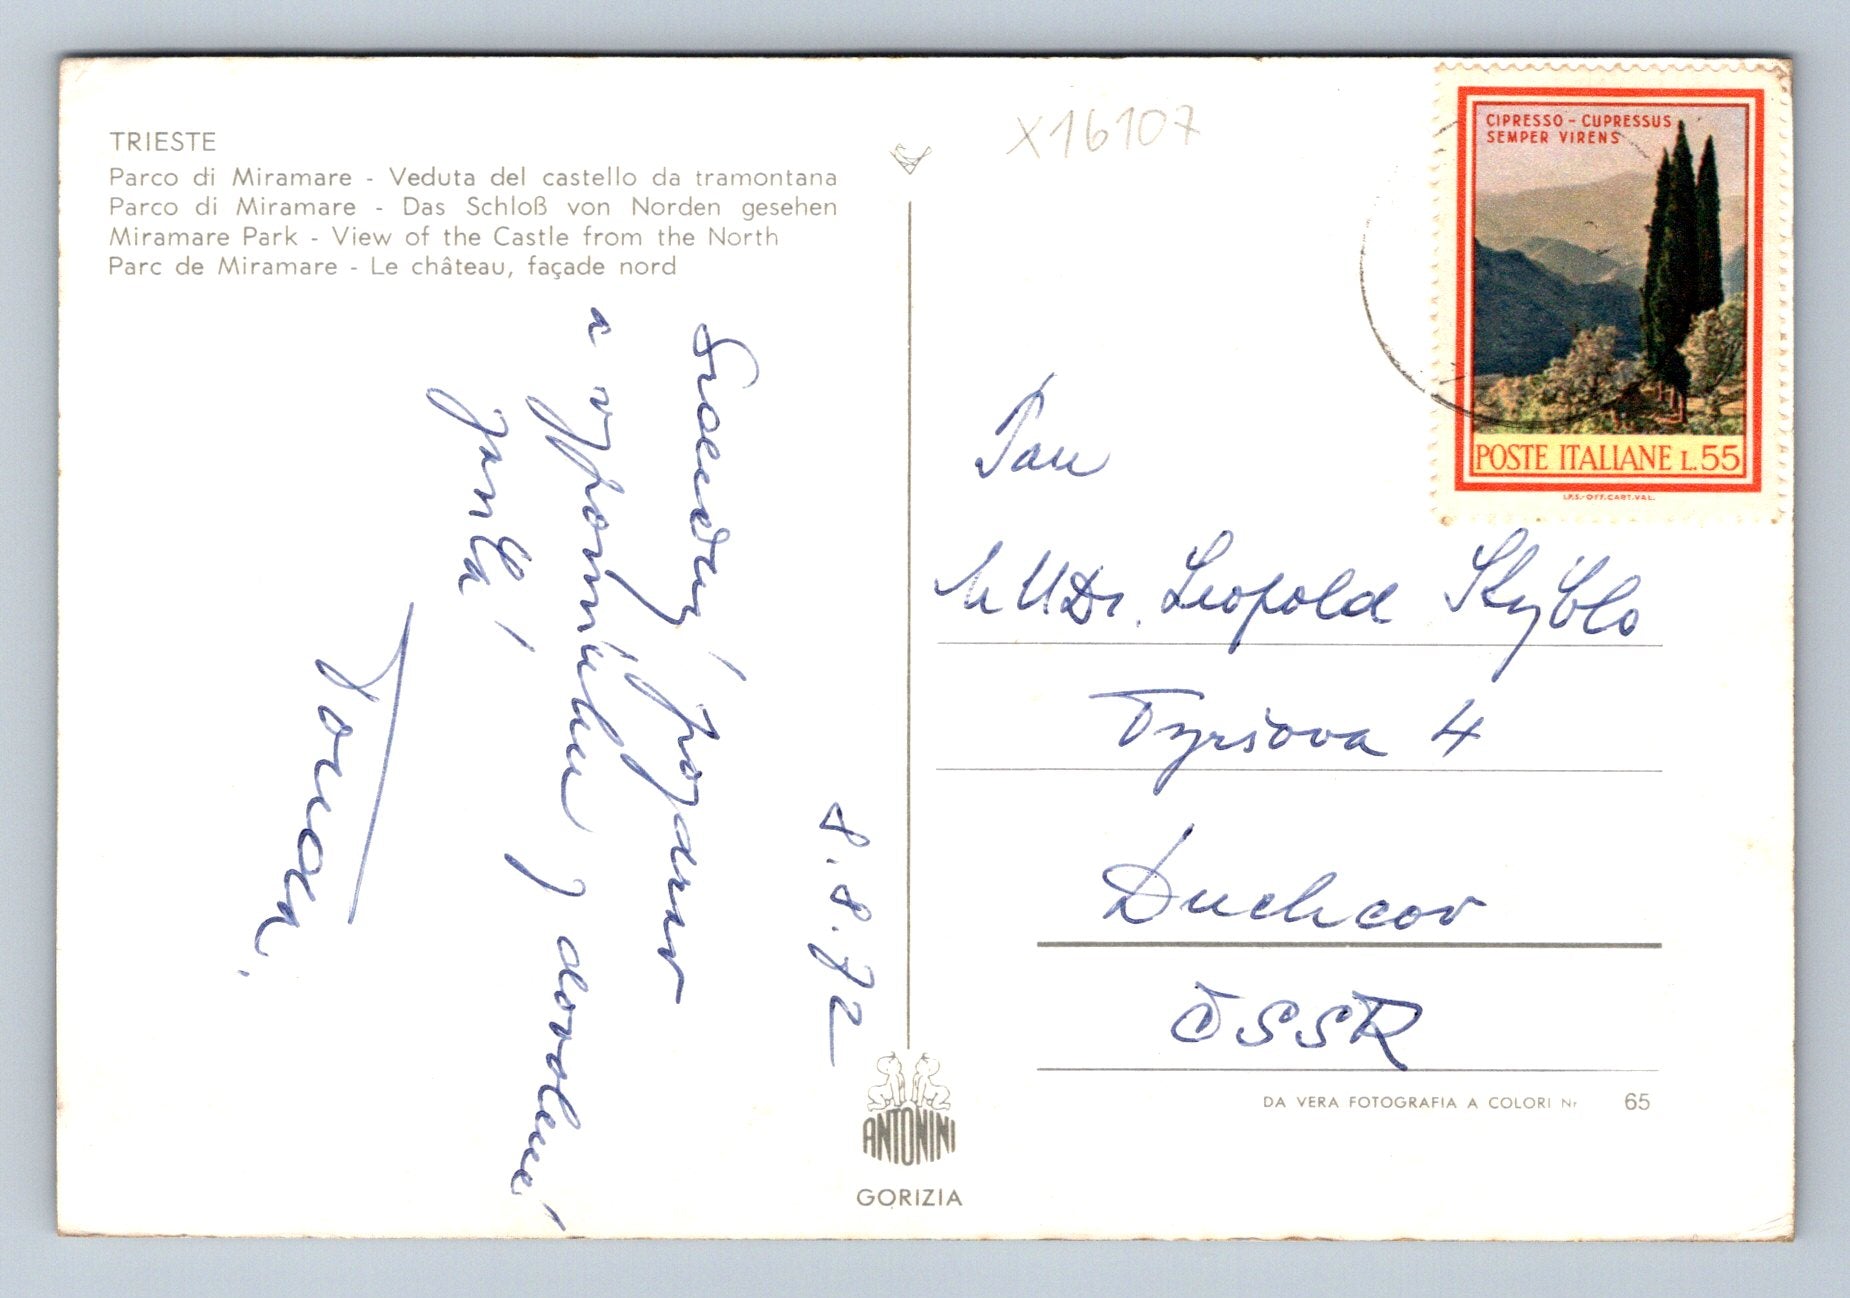 TRIESTE
Parco di Miramare - Veduta del castello da tramontana
Parco di Miramare - Das Schloß von Norden gesehen
Miramare Park - View of the Castle from the North
Parc de Miramare - Le château, façade nord
8.8.72
Srdečný pozdrav
a vzpomínku z dovolené
Janka
X16107
CIPRESSO - CUPRESSUS
SEMPER VIRENS
POSTE ITALIANE L.55
I.P.S.-OFF.CART.VAL.
Pan
MUDr. Leopold Stýblo
Tyršova 4
Duchcov
ČSSR
DA VERA FOTOGRAFIA A COLORI Nr 65
ANTONINI
GORIZIA